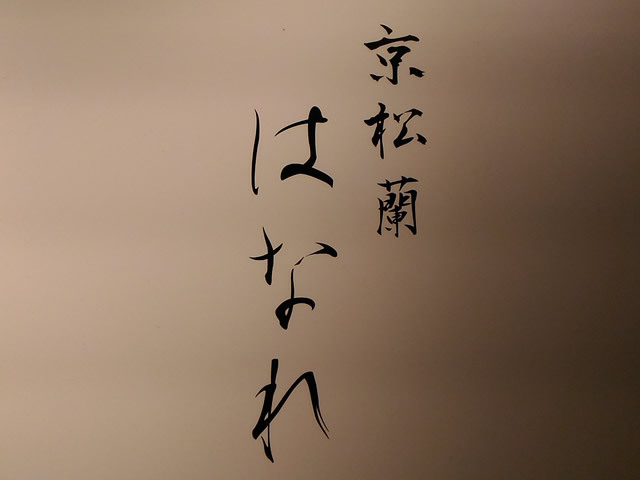 京松蘭
はなれ